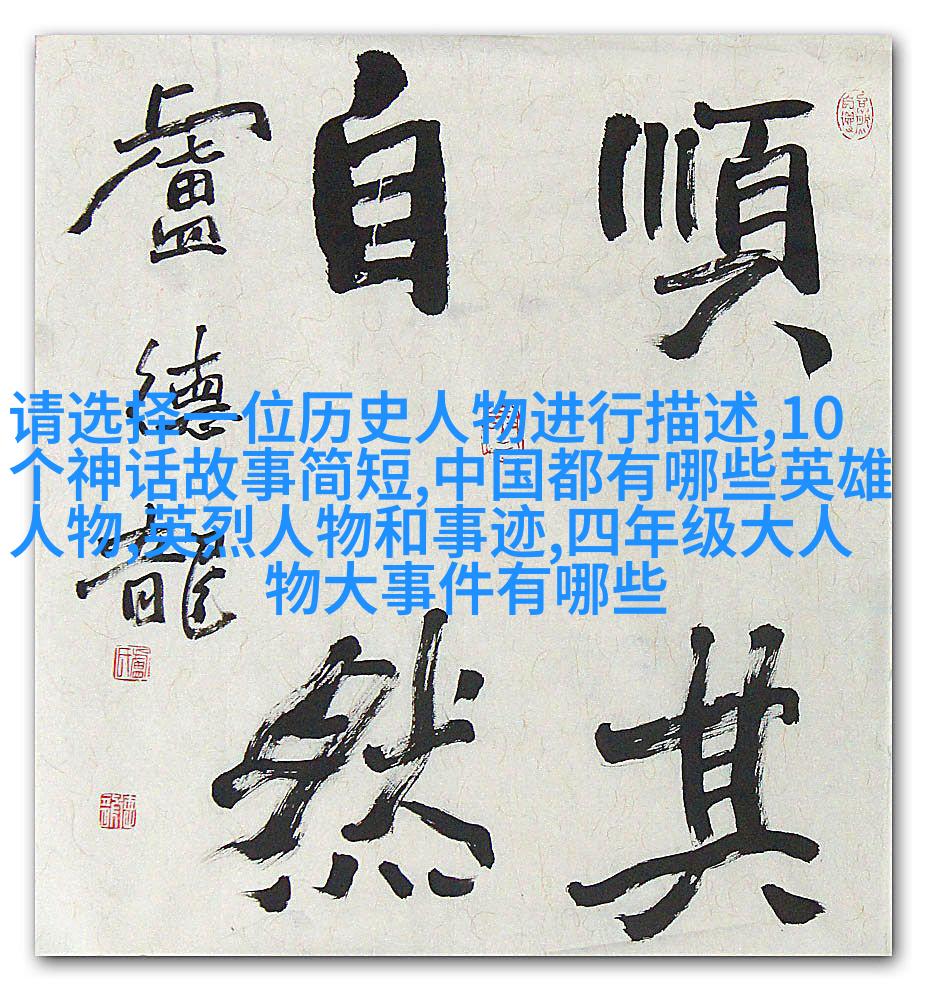 順其
自然
盧德龍
请选择一位历史人物进行描述,10
个神话故事简短,中国都有哪些英雄
人物,英烈人物和事迹,四年级大人
物大事件有哪些